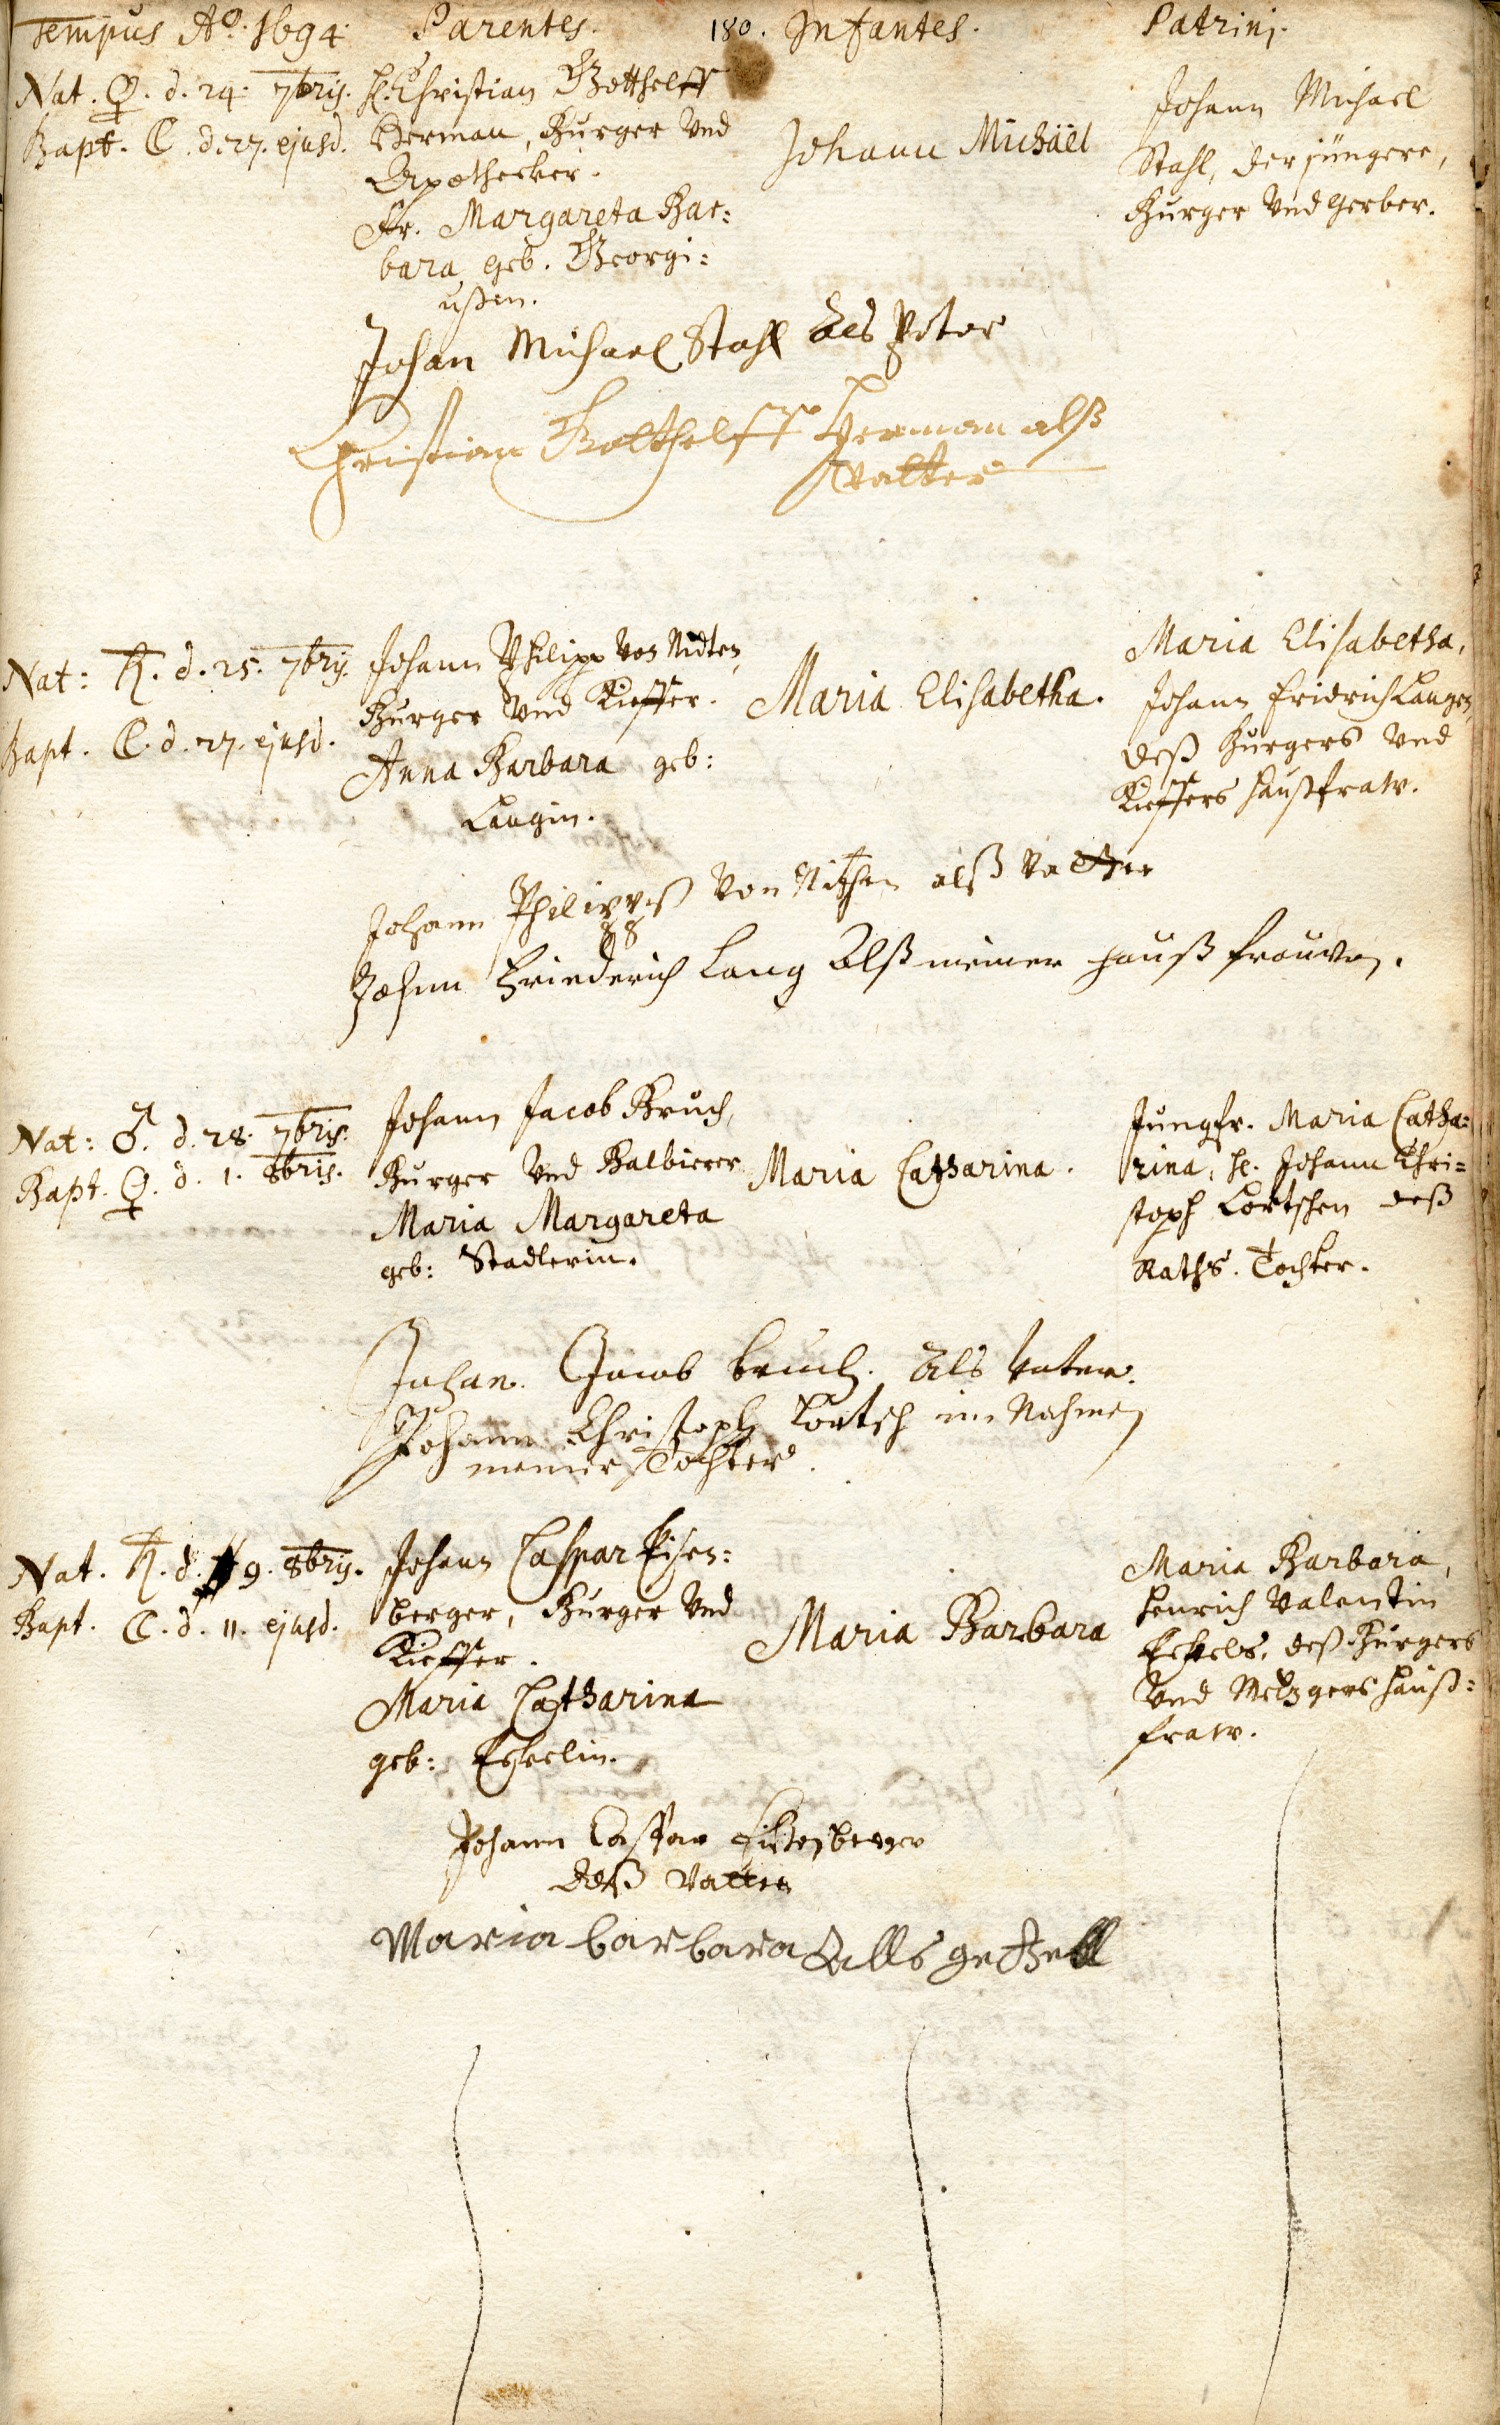 Tempus Aº. 1694. Parentes. 180. Infantes. Patrini.
Nat. ♀. d. 24. 7bris.
Bapt. ☾. d. 27. ejusd.
H. Christian Gotthelff
Herman, Burger vnd
Apothecker.
Fr. Margareta Bar=
bara, geb. Georgi=
ußen.
Johann Michäel
Johann Michael
Stahl, der jüngere,
Burger vnd Gerber.
Johan Michael Stahl als
Christian Gotthelff Herman alß
Vatter
Nat: ♄. d. 25. 7bris.
Bapt. ☾. d. 27. ejusd.
Johann Philipp von Nidten,
Burger vnd Kieffer.
Anna Barbara geb:
Langin.
Maria Elisabetha.
Maria Elisabetha,
Johann Fridrich Langen,
deß Burgers vnd
Kieffers haußfraw.
Johann Philippuß von alß Vatter
Johnn Friederich Lang Alß meiner hauß frauwen.
Nat: ♂. d. 28. 7bris.
Bapt. ♀. d. 1. 8bris.
Johann Jacob Bruch,
Burger vnd Balbierer
Maria Margareta
geb: Stadlerin.
Maria Catharina.
Jungfr. Maria Catha=
rina, H. Johann Chri=
stoph Lortschen deß
Raths. Tochter.
Johan. Jacob bruch. Als Vater.
Johann Christoph Lortsch im Nahmen
meiner Tochter.
Nat. ♄. d. 9. 8bris.
Bapt. ☾. d. 11. ejusd.
Johann Caspar Eisen=
berger, Burger vnd
Kieffer.
Maria Catharina
geb:
Maria Barbara
Maria Barbara,
Henrich Valentin
deß Burgers
vnd Metzgers hauß=
fraw.
Johann Casper
Vatter
Maria barbara Alls